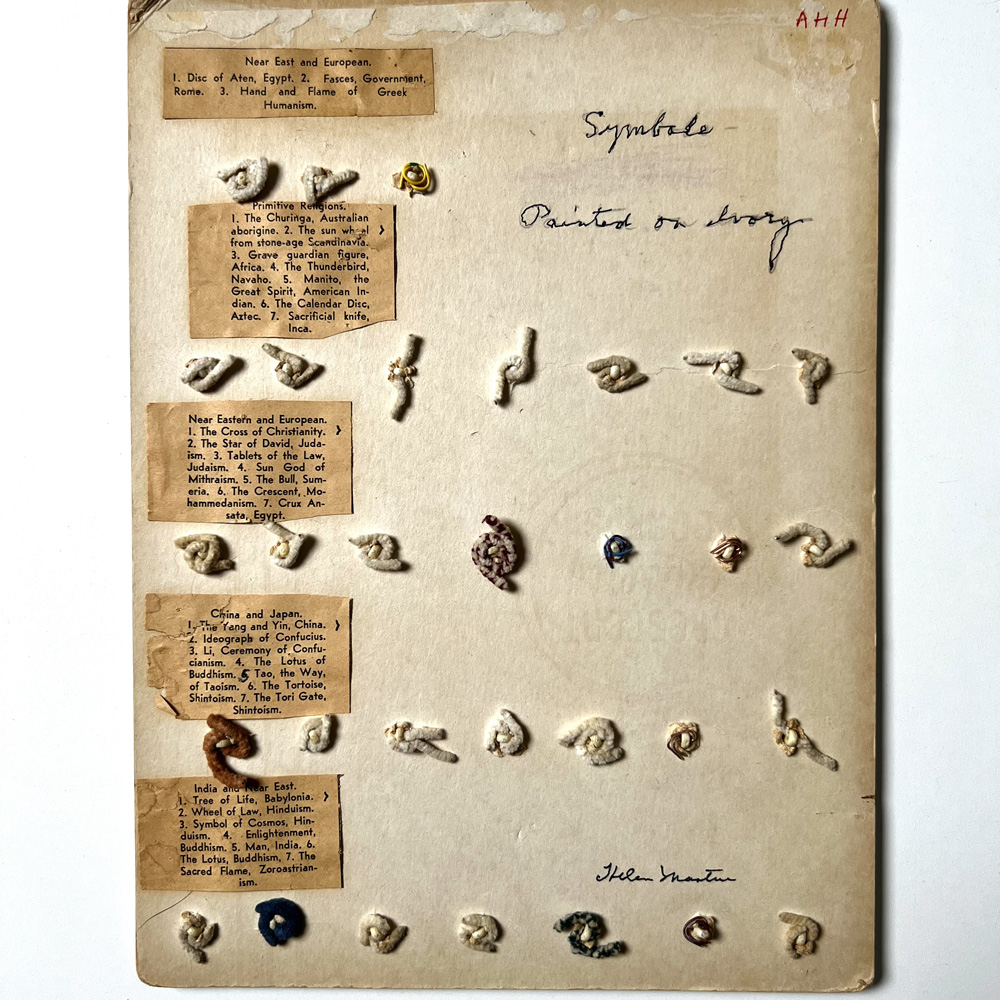 AHH
Near East and European.
1. Disc of Aten, Egypt. 2. Fasces, Government,
Rome. 3. Hand and Flame of Greek
Humanism.
Symbols
Painted on Ivory
Primitive Religions.
1. The Churinga, Australian
aborigine. 2. The sun wheel
from stone-age Scandinavia.
3. Grave guardian figure,
Africa. 4. The Thunderbird,
Navaho. 5. Manito, the
Great Spirit, American In-
dian. 6. The Calendar Disc,
Aztec. 7. Sacrificial knife,
Inca.
Near Eastern and European.
1. The Cross of Christianity.
2. The Star of David, Juda-
ism. 3. Tablets of the Law,
Judaism. 4. Sun God of
Mithraism. 5. The Bull, Sum-
eria. 6. The Crescent, Mo-
hammedanism. 7. Crux An-
sata, Egypt.
China and Japan.
1. The Yang and Yin, China.
2. Ideograph of Confucius.
3. Li, Ceremony of Confu-
cianism. 4. The Lotus of
Buddhism. 5 Tao, the Way,
of Taoism. 6. The Tortoise,
Shintoism. 7. The Tori Gate,
Shintoism.
India and Near East.
1. Tree of Life, Babylonia.
2. Wheel of Law, Hinduism.
3. Symbol of Cosmos, Hin-
duism. 4. Enlightenment,
Buddhism. 5. Man, India. 6.
The Lotus, Buddhism, 7. The
Sacred Flame, Zoroastrian-
ism.
Helen